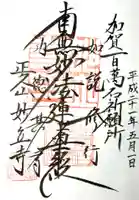 平成二十一年五月一日
加賀百萬石祈願所
如説修行
南無妙法蓮華経
功徳甚多
正久山妙立寺